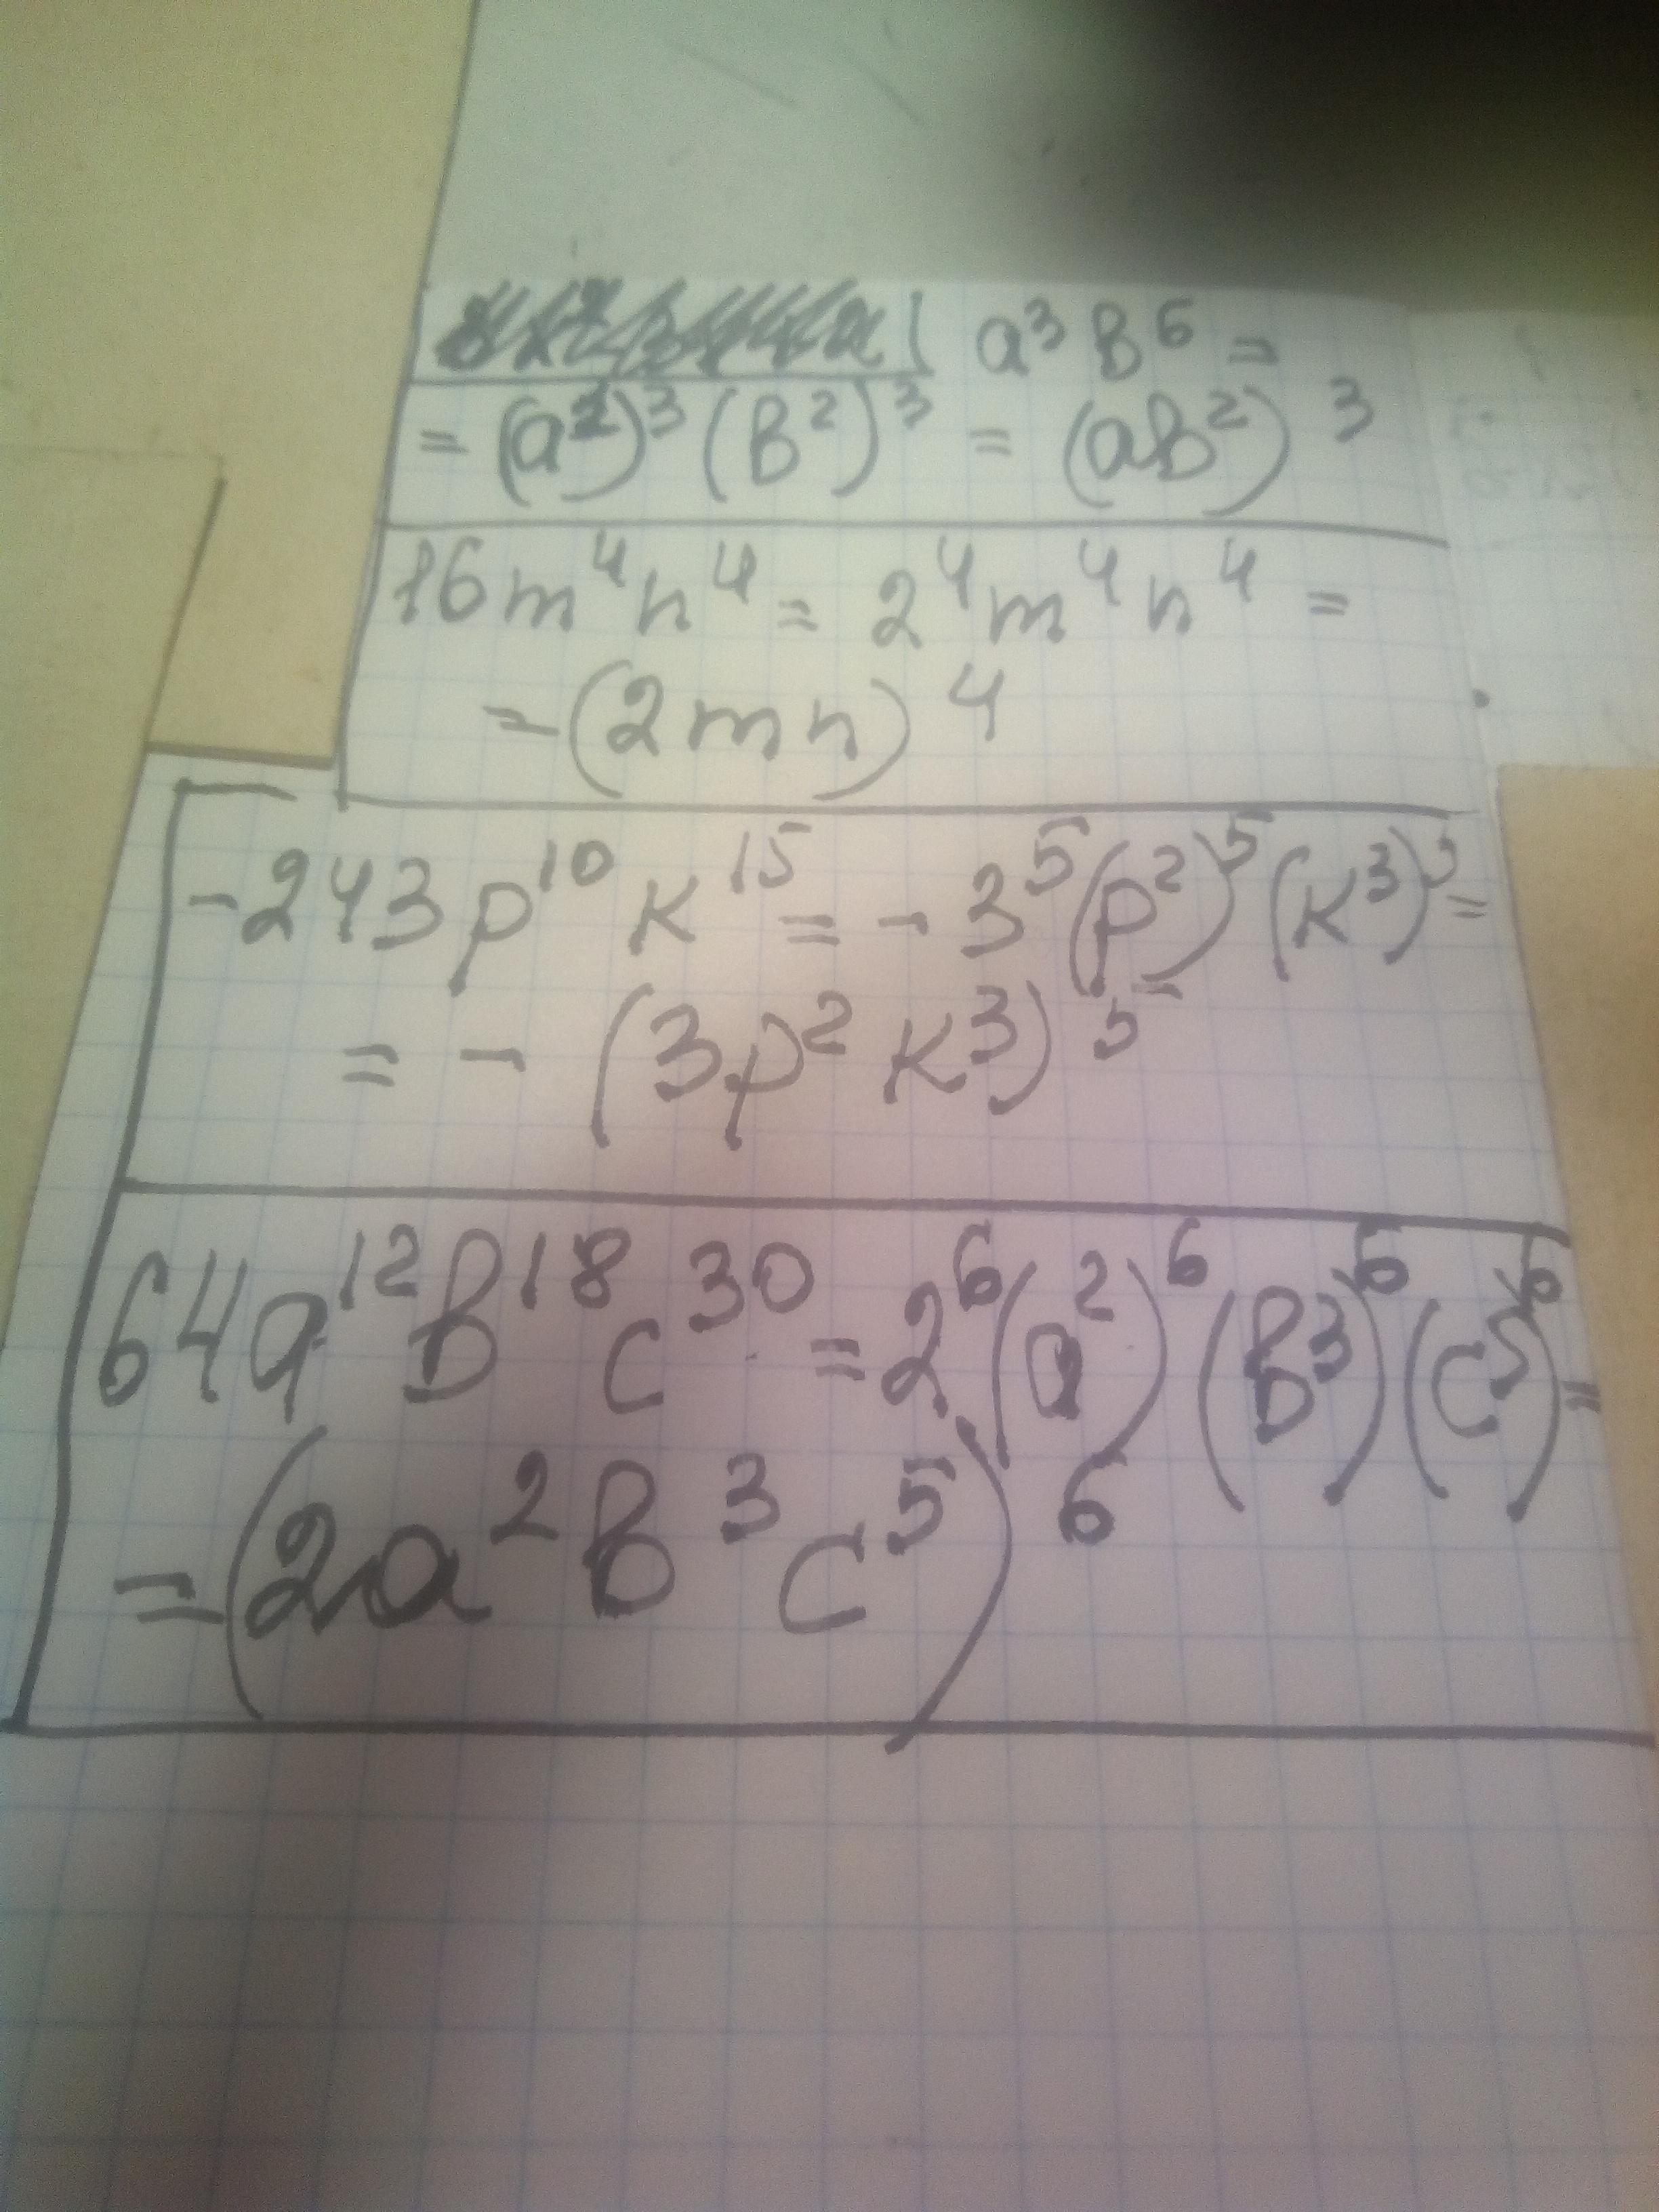 a³ b⁶ =
= (a¹)³ (b²)³ = (ab²)³
16m⁴n⁴ = 2⁴m⁴n⁴ =
= (2mn)⁴
-243p¹⁰k¹⁵ = -3⁵(p²)⁵(k³)⁵ =
= -(3p²k³)⁵
64a¹²b¹⁸c³⁰ = 2⁶(a²)⁶(b³)⁶(c⁵)⁶ =
= (2a²b³c⁵)⁶